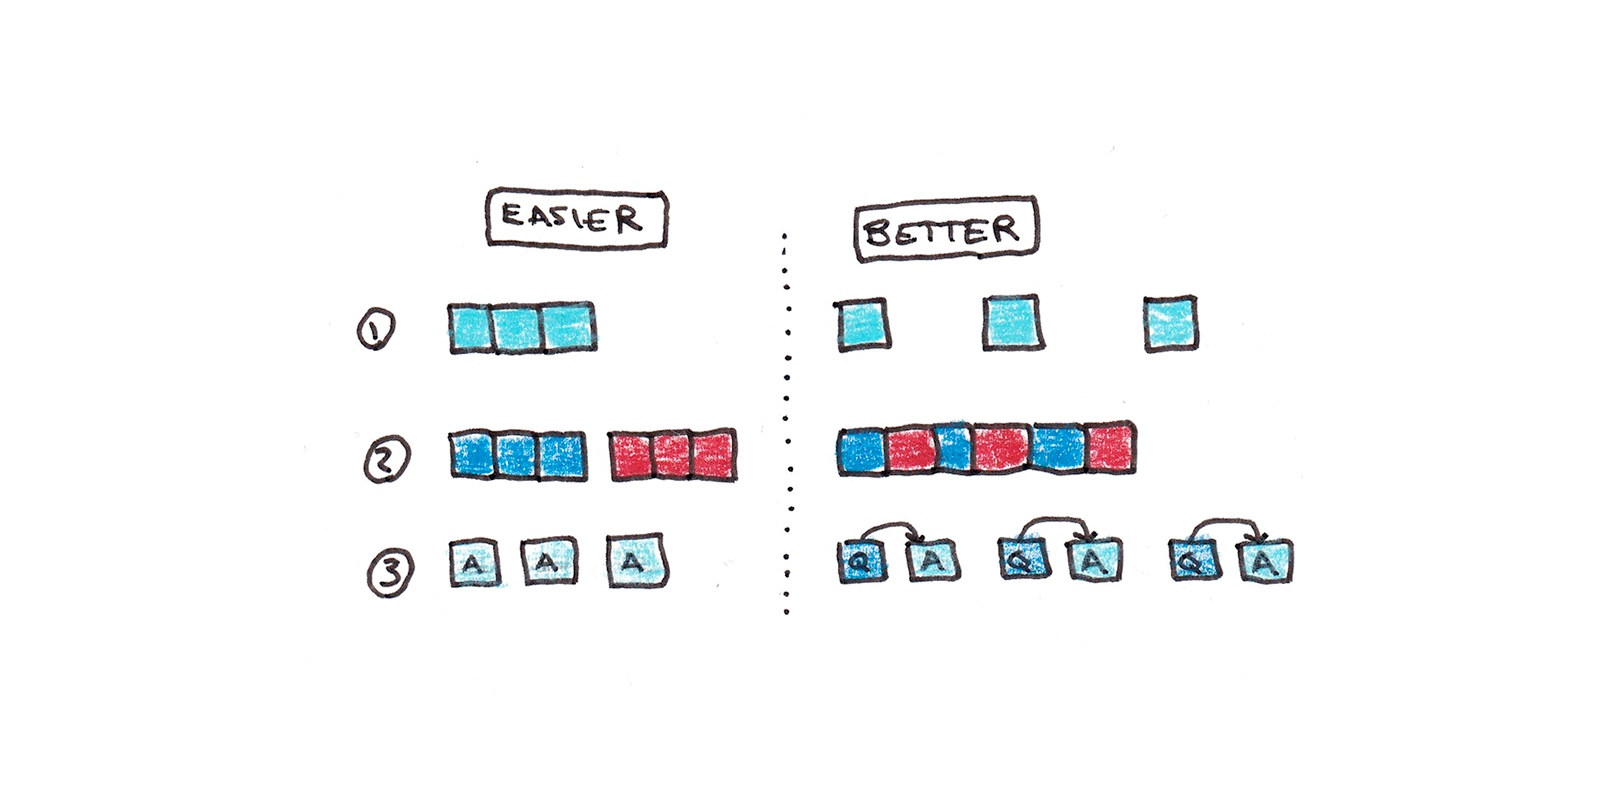 EASIER
BETTER
1
2
3
A A A
Q A Q A Q A